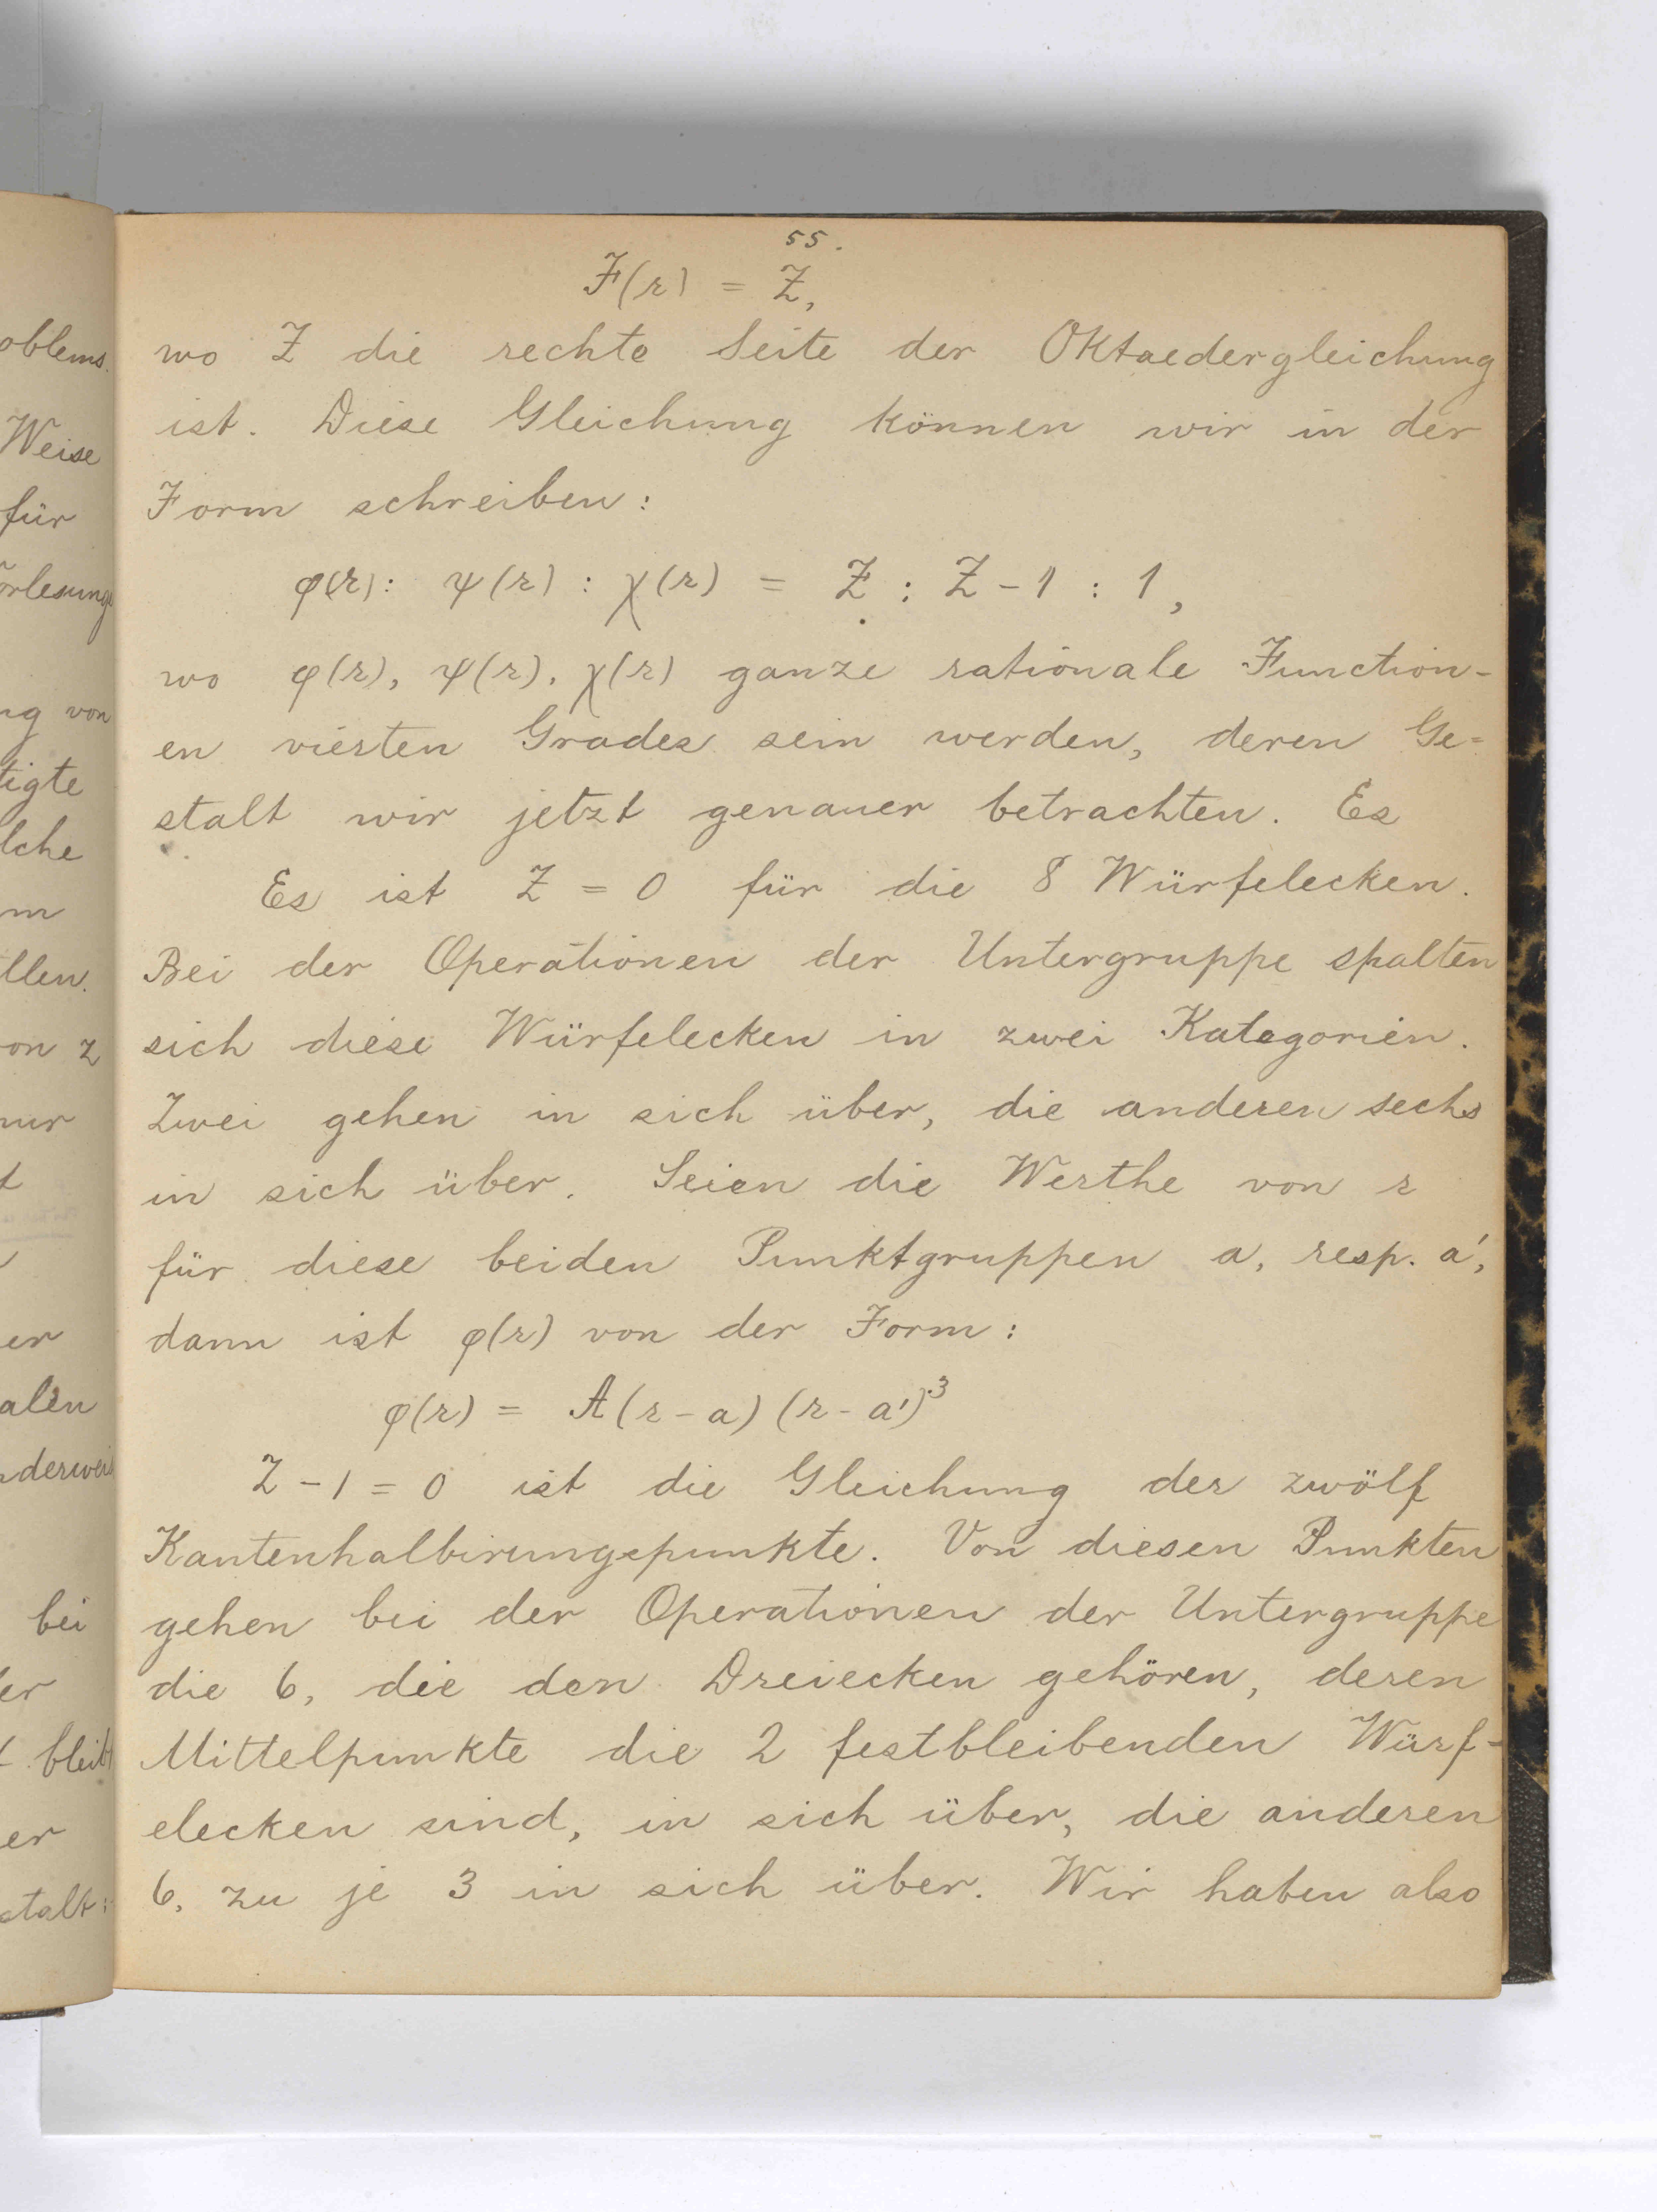 55.
F(r) = Z,
wo Z die rechte Seite der Oktaedergleichung
ist. Diese Gleichung können wir in der
Form schreiben:
φ(r) : ψ(r) : χ(r) = Z : Z - 1 : 1,
wo φ(r), ψ(r), χ(r) ganze rationale Function-
en vierten Grades sein werden, deren Ge=
stalt wir jetzt genauer betrachten. Es
Es ist Z = 0 für die 8 Würfelecken.
Bei der Operationen der Untergruppe spalten
sich diese Würfelecken in zwei Kategorien.
Zwei gehen in sich über, die anderen sechs
in sich über. Seien die Werthe von r
für diese beiden Punktgruppen a, resp. a',
dann ist φ(r) von der Form:
φ(r) = A(r - a)(r - a')³
Z - 1 = 0 ist die Gleichung der zwölf
Kantenhalbirungspunkte. Von diesen Punkten
gehen bei der Operationen der Untergruppe
die 6, die den Dreiecken gehören, deren
Mittelpunkte die 2 festbleibenden Würf-
elecken sind, in sich über, die anderen
6, zu je 3 in sich über. Wir haben also
oblems.
Weise
für
ng von
tigte
lche
m
llen.
on z
nur
t
er
alen
bei
er
t bleibt
er
stalt: